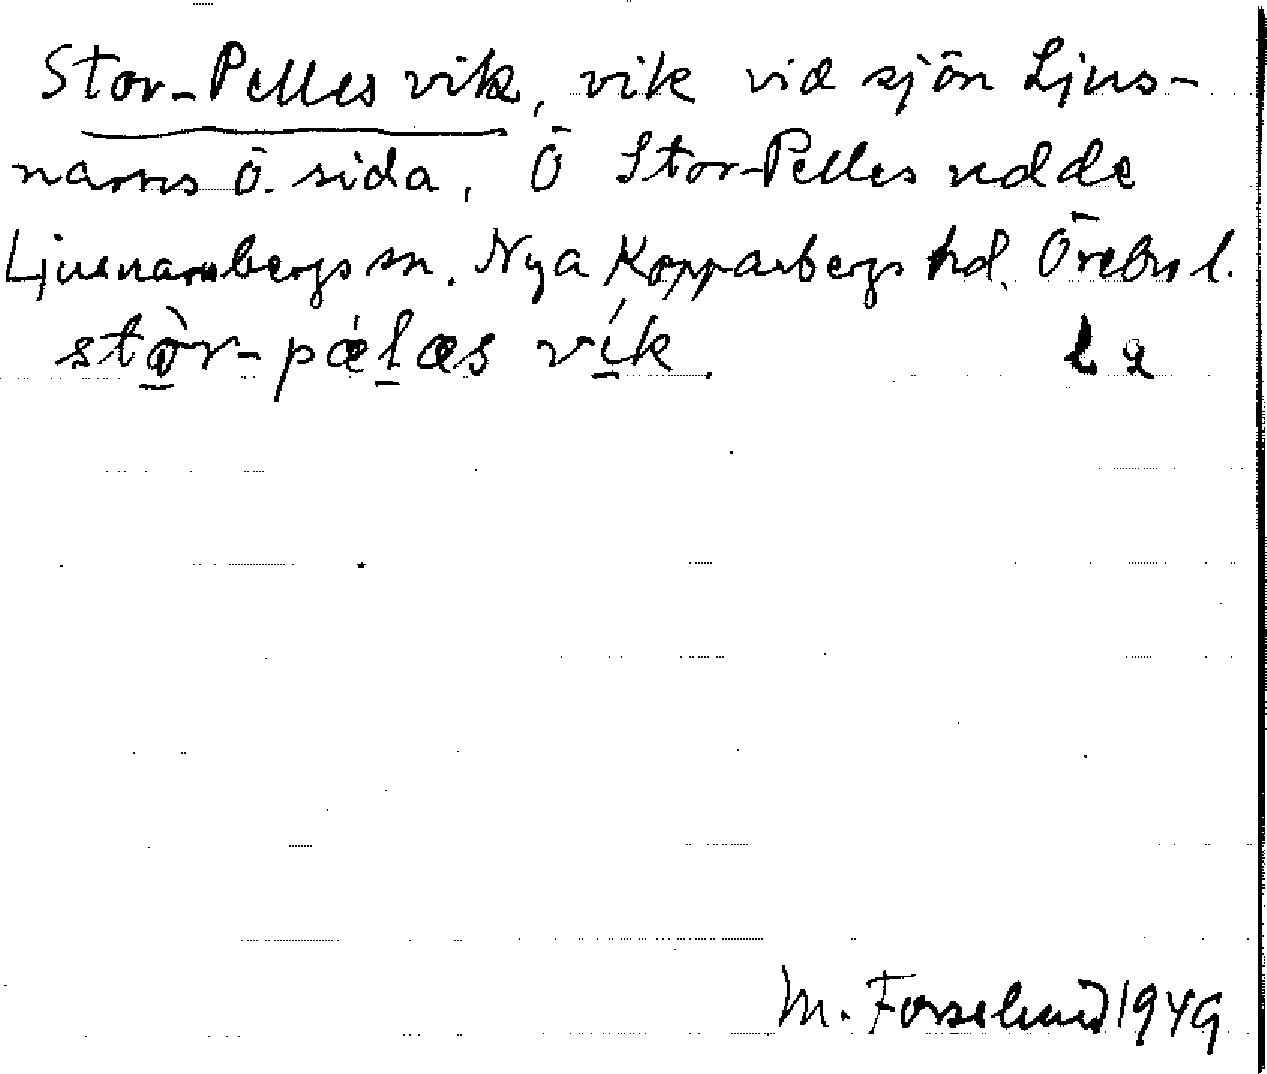 Stor-Pelles vik, vik vid sjön Ljus-
narns ö. sida, Ö Stor-Pelles udde
Ljusnarsbergs sn. Nya Kopparbergs hd. Örebro l.
stòr-pǽlæs vík.
M. Forslund 1949